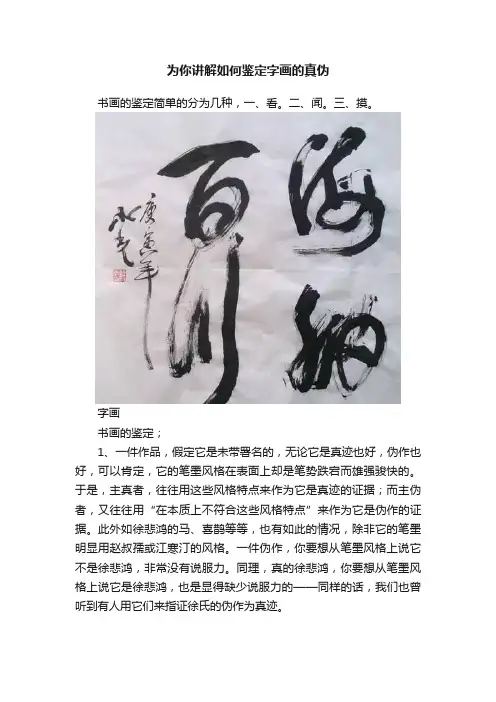 为你讲解如何鉴定字画的真伪
书画的鉴定简单的分为几种，一、看。二、闻。三、摸。
海纳
百川
庚寅年
字画
书画的鉴定；
1、一件作品，假定它是未带署名的，无论它是真迹也好，伪作也
好，可以肯定，它的笔墨风格在表面上却是笔势跌宕而雄强骏快的。
于是，主真者，往往用这些风格特点来作为它是真迹的证据；而主伪
者，又往往用“在本质上不符合这些风格特点”来作为它是伪作的证
据。此外如徐悲鸿的马、喜鹊等等，也有如此的情况，除非它的笔墨
明显用赵叔孺或江寒汀的风格。一件伪作，你要想从笔墨风格上说它
不是徐悲鸿，非常没有说服力。同理，真的徐悲鸿，你要想从笔墨风
格上说它是徐悲鸿，也是显得缺少说服力的——同样的话，我们也曾
听到有人用它们来指证徐氏的伪作为真迹。